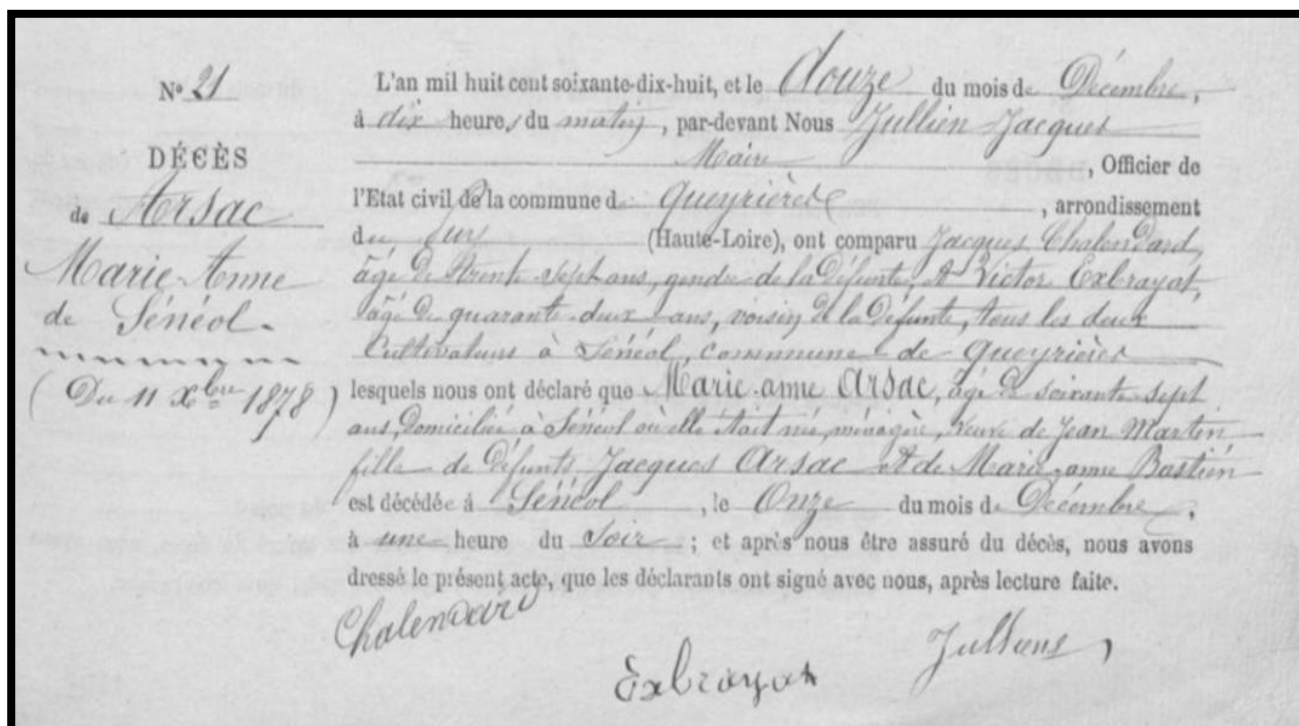 N° 21
DÉCÈS
de Arsac
Marie-Anne
de Sénéol.
( Du 11 Xbre 1878 )
L'an mil huit cent soixante-dix-huit, et le douze du mois de Décembre,
à dix heures du matin, par-devant Nous Jullien Jacques
Maire, Officier de
l'Etat civil de la commune de Queyrières, arrondissement
du Puy (Haute-Loire), ont comparu Jacques Chalendard,
âgé de trente sept ans, gendre de la Défunte, et Victor Exbrayat,
âgé de quarante-deux ans, voisin de la Défunte, tous les deux
Cultivateurs à Sénéol, commune de Queyrières
lesquels nous ont déclaré que Marie-anne Arsac, âgé de soixante sept
ans, Domiciliée à Sénéol où elle était née, ménagère, Veuve de Jean Martin
fille de Défunts Jacques Arsac et de Marie-anne Bastien
est décédée à Sénéol, le Onze du mois de Décembre,
à une heure du Soir ; et après nous être assuré du décès, nous avons
dressé le présent acte, que les déclarants ont signé avec nous, après lecture faite.
Chalendard
Exbrayat
Jullien